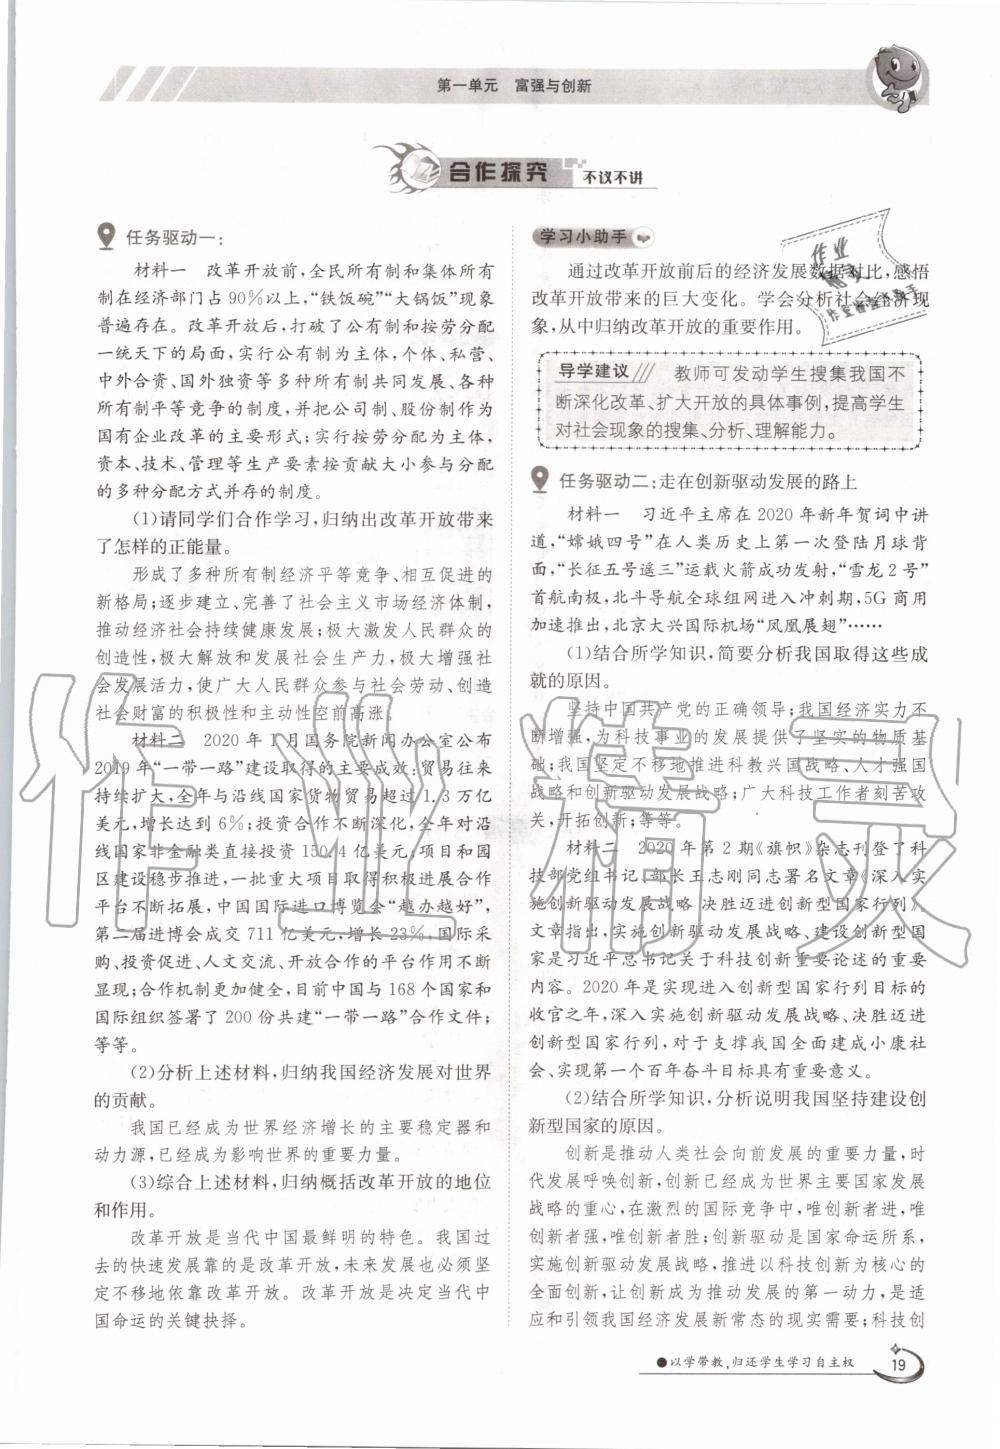 第一单元 富强与创新
合作探究 不议不讲
任务驱动一:
材料一 改革开放前,全民所有制和集体所有
制在经济部门占90%以上,“铁饭碗”“大锅饭”现象
普遍存在。改革开放后,打破了公有制和按劳分配
一统天下的局面,实行公有制为主体,个体、私营、
中外合资、国外独资等多种所有制共同发展、各种
所有制平等竞争的制度,并把公司制、股份制作为
国有企业改革的主要形式;实行按劳分配为主体,
资本、技术、管理等生产要素按贡献大小参与分配
的多种分配方式并存的制度。
(1)请同学们合作学习,归纳出改革开放带来
了怎样的正能量。
形成了多种所有制经济平等竞争、相互促进的
新格局;逐步建立、完善了社会主义市场经济体制,
推动经济社会持续健康发展;极大激发人民群众的
创造性,极大解放和发展社会生产力,极大增强社
会发展活力,使广大人民群众参与社会劳动、创造
社会财富的积极性和主动性空前高涨。
材料二 2020年1月国务院新闻办公室公布
2019年“一带一路”建设取得的主要成效:贸易往来
持续扩大,全年与沿线国家货物贸易超过1.3万亿
美元,增长达到6%;投资合作不断深化,全年对沿
线国家非金融类直接投资150.4亿美元;项目和园
区建设稳步推进,一批重大项目取得积极进展合作
平台不断拓展,中国国际进口博览会“越办越好”,
第二届进博会成交711亿美元,增长23%,国际采
购、投资促进、人文交流、开放合作的平台作用不断
显现;合作机制更加健全,目前中国与168个国家和
国际组织签署了200份共建“一带一路”合作文件;
等等。
(2)分析上述材料,归纳我国经济发展对世界
的贡献。
我国已经成为世界经济增长的主要稳定器和
动力源,已经成为影响世界的重要力量。
(3)综合上述材料,归纳概括改革开放的地位
和作用。
改革开放是当代中国最鲜明的特色。我国过
去的快速发展靠的是改革开放,未来发展也必须坚
定不移地依靠改革开放。改革开放是决定当代中
国命运的关键抉择。
学习小助手
通过改革开放前后的经济发展数据对比,感悟
改革开放带来的巨大变化。学会分析社会经济现
象,从中归纳改革开放的重要作用。
导学建议 教师可发动学生搜集我国不
断深化改革、扩大开放的具体事例,提高学生
对社会现象的搜集、分析、理解能力。
任务驱动二:走在创新驱动发展的路上
材料一 习近平主席在2020年新年贺词中讲
道,“嫦娥四号”在人类历史上第一次登陆月球背
面,“长征五号遥三”运载火箭成功发射,“雪龙2号”
首航南极,北斗导航全球组网进入冲刺期,5G商用
加速推出,北京大兴国际机场“凤凰展翅”……
(1)结合所学知识,简要分析我国取得这些成
就的原因。
坚持中国共产党的正确领导;我国经济实力不
断增强,为科技事业的发展提供了坚实的物质基
础;我国坚定不移地推进科教兴国战略、人才强国
战略和创新驱动发展战略;广大科技工作者刻苦攻
关,开拓创新;等等。
材料二 2020年第2期《旗帜》杂志刊登了科
技部党组书记、部长王志刚同志署名文章《深入实
施创新驱动发展战略 决胜迈进创新型国家行列》。
文章指出,实施创新驱动发展战略、建设创新型国
家是习近平总书记关于科技创新重要论述的重要
内容。2020年是实现进入创新型国家行列目标的
收官之年,深入实施创新驱动发展战略、决胜迈进
创新型国家行列,对于支撑我国全面建成小康社
会、实现第一个百年奋斗目标具有重要意义。
(2)结合所学知识,分析说明我国坚持建设创
新型国家的原因。
创新是推动人类社会向前发展的重要力量,时
代发展呼唤创新,创新已经成为世界主要国家发展
战略的重心,在激烈的国际竞争中,唯创新者进,唯
创新者强,唯创新者胜;创新驱动是国家命运所系,
实施创新驱动发展战略,推进以科技创新为核心的
全面创新,让创新成为推动发展的第一动力,是适
应和引领我国经济发展新常态的现实需要;科技创
以学带教,归还学生学习自主权
19
作业精灵